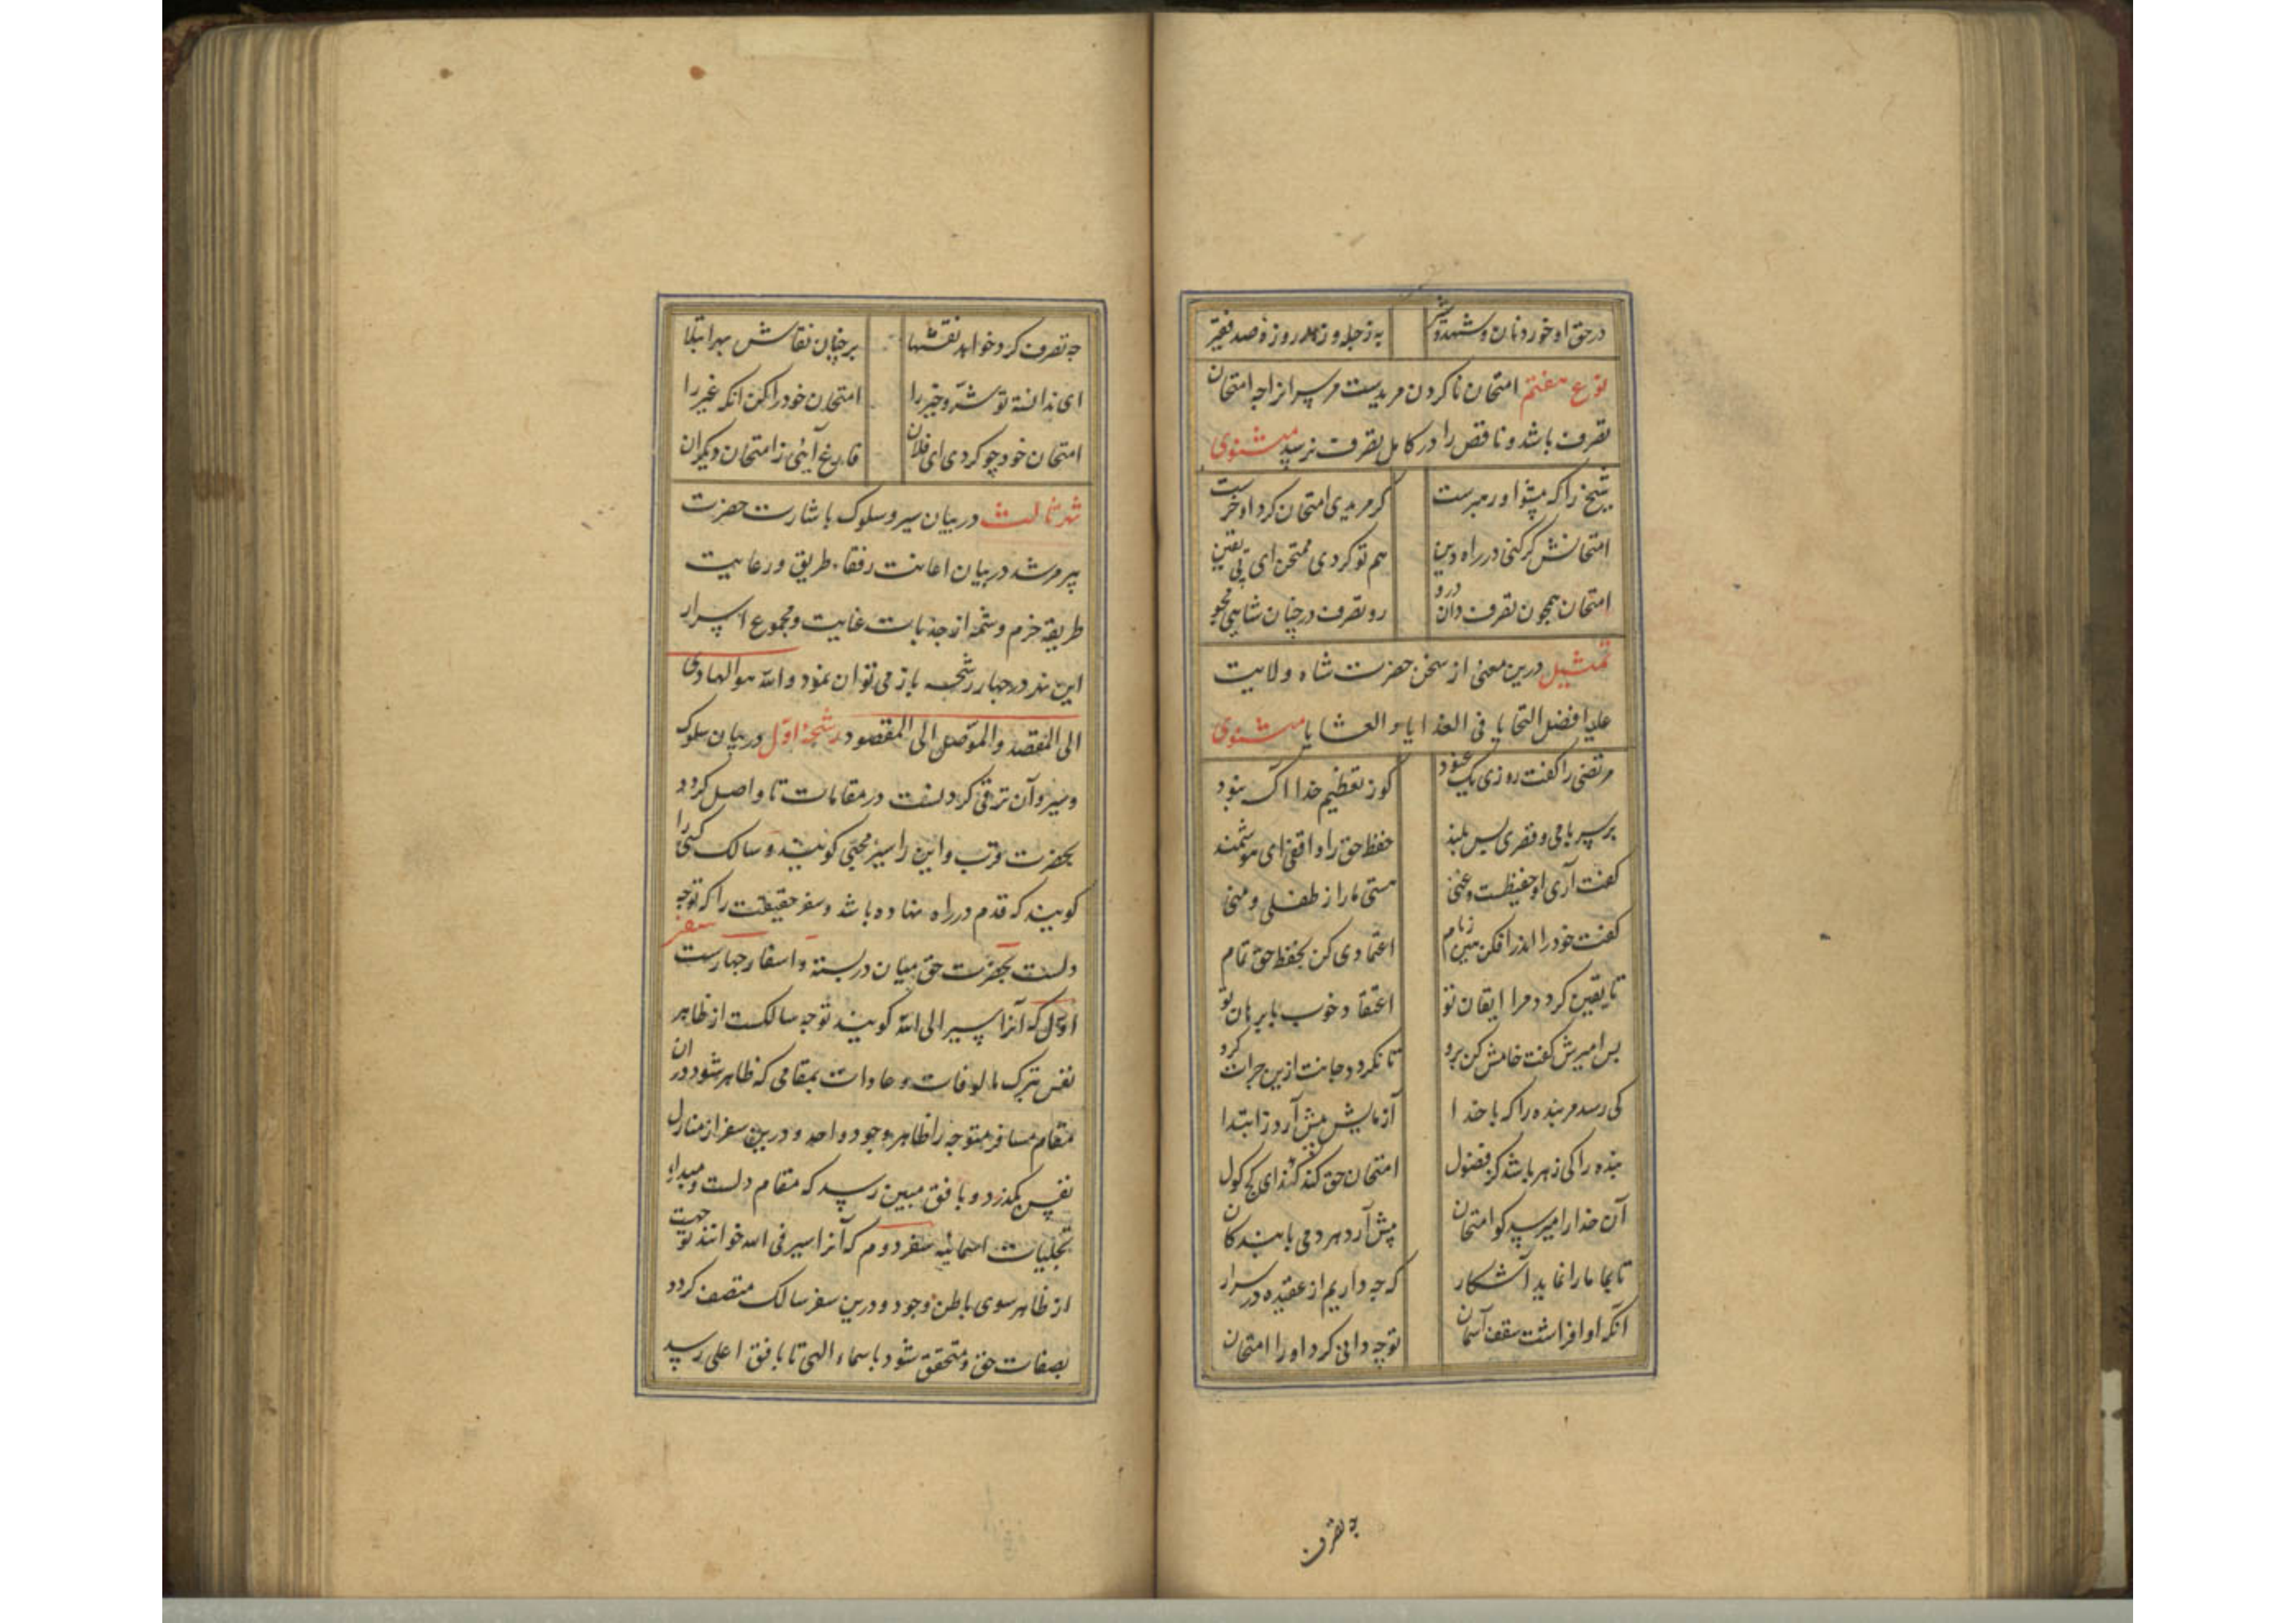 در حق او خورد نان و شهد و شیر به ز چله وز سه روزه صد فقیر
نوع هفتم امتحان ناکردن مریدست مر پیر را از آنچه امتحان
تصرف باشد و ناقص را در کامل تصرف نرسد مثنوی
شیخ را که پیشوا و رهبرست گر مریدی امتحان کرد او خرست
امتحانش گر کنی در راه دین هم تو گردی ممتحن ای بی یقین
امتحان همچون تصرف دان درو رو تصرف در چنان شاهی مجو
تمثیل درین معنی از سخن حضرت شاه ولایت
علیه افضل التحایا فی الغدایا و العشایا مثنوی
مرتضی را گفت روزی یک عنود کو ز تعظیم خدا آگه نبود
بر سر بامی و قصری بس بلند حفظ حق را واقفی ای هوشمند
گفت آری او حفیظست و غنی هستی ما را ز طفلی و منی
گفت خود را اندر افکن هین ز بام اعتمادی کن بحفظ حق تمام
تا یقین گردد مرا ایقان تو اعتقاد خوب با برهان تو
پس امیرش گفت خامش کن برو تا نگردد جانت ازین جرات گرو
کی رسد مر بنده را که با خدا آزمایش پیش آرد ز ابتدا
بنده را کی زهره باشد کز فضول امتحان حق کند ای گیج گول
آن خدا را میرسد کو امتحان پیش آرد هر دمی با بندگان
تا بما ما را نماید آشکار که چه داریم از عقیده در سرار
آنکه او افراشت سقف آسمان تو چه دانی کرد او را امتحان
چه تصرف
چه تصرف کرد خواهد نقشها بر چنان نقاش بهر ابتلا
ای ندانسته تو شر و خیر را امتحان خود را کن آنگه غیر را
امتحان خود چو کردی ای فلان فارغ آیی ز امتحان دیگران
نهر ثالث در بیان سیر و سلوک باشارت حضرت
پیر مرشد در بیان اعانت رفقاء طریق و رعایت
طریقه حزم و شمه از جذبات عنایت و مجموع اسرار
این نهر در چهار رشحه باز می توان نمود والله هو الهادی
الی المقصد والموصل الی المقصود رشحه اول در بیان سلوک
و سیر و آن ترقی کردنست در مقامات تا واصل گردد
بحضرت قرب و این را سیر محبی گویند و سالک کسی را
گویند که قدم در راه نهاده باشد و سفر حقیقت را که توجه
دلست بحضرت حق میان دربسته و اسفار چهارست سفر
اول که آنرا سیر الی الله گویند توجه سالکست از ظاهر
نفس بترک مالوفات و عادات بمقامی که ظاهر شود در ان
مقام مسافر متوجه را ظاهر وجود واحد و درین سفر از منازل
نفس بگذرد و بافق مبین رسد که مقام دلست و مبداء
تجلیات اسمائیه سفر دوم که آنرا سیر فی الله خوانند توجهست
از ظاهر سوی باطن وجود و درین سفر سالک متصف گردد
بصفات حق و متحقق شود باسماء الهی تا بافق اعلی رسد